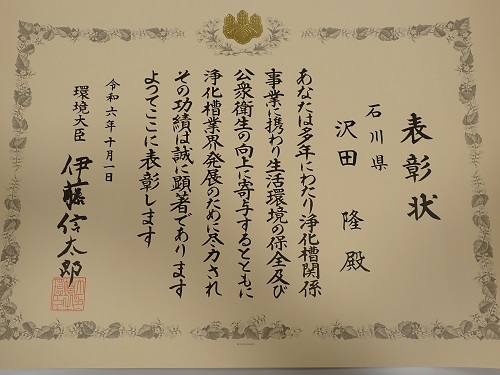 表彰状
石川県
沢田 隆 殿
あなたは多年にわたり浄化槽関係
事業に携わり生活環境の保全及び
公衆衛生の向上に寄与するとともに
浄化槽業界発展のために尽力され
その功績は誠に顕著であります
よってここに表彰します
令和六年十月一日
環境大臣 伊藤信太郎